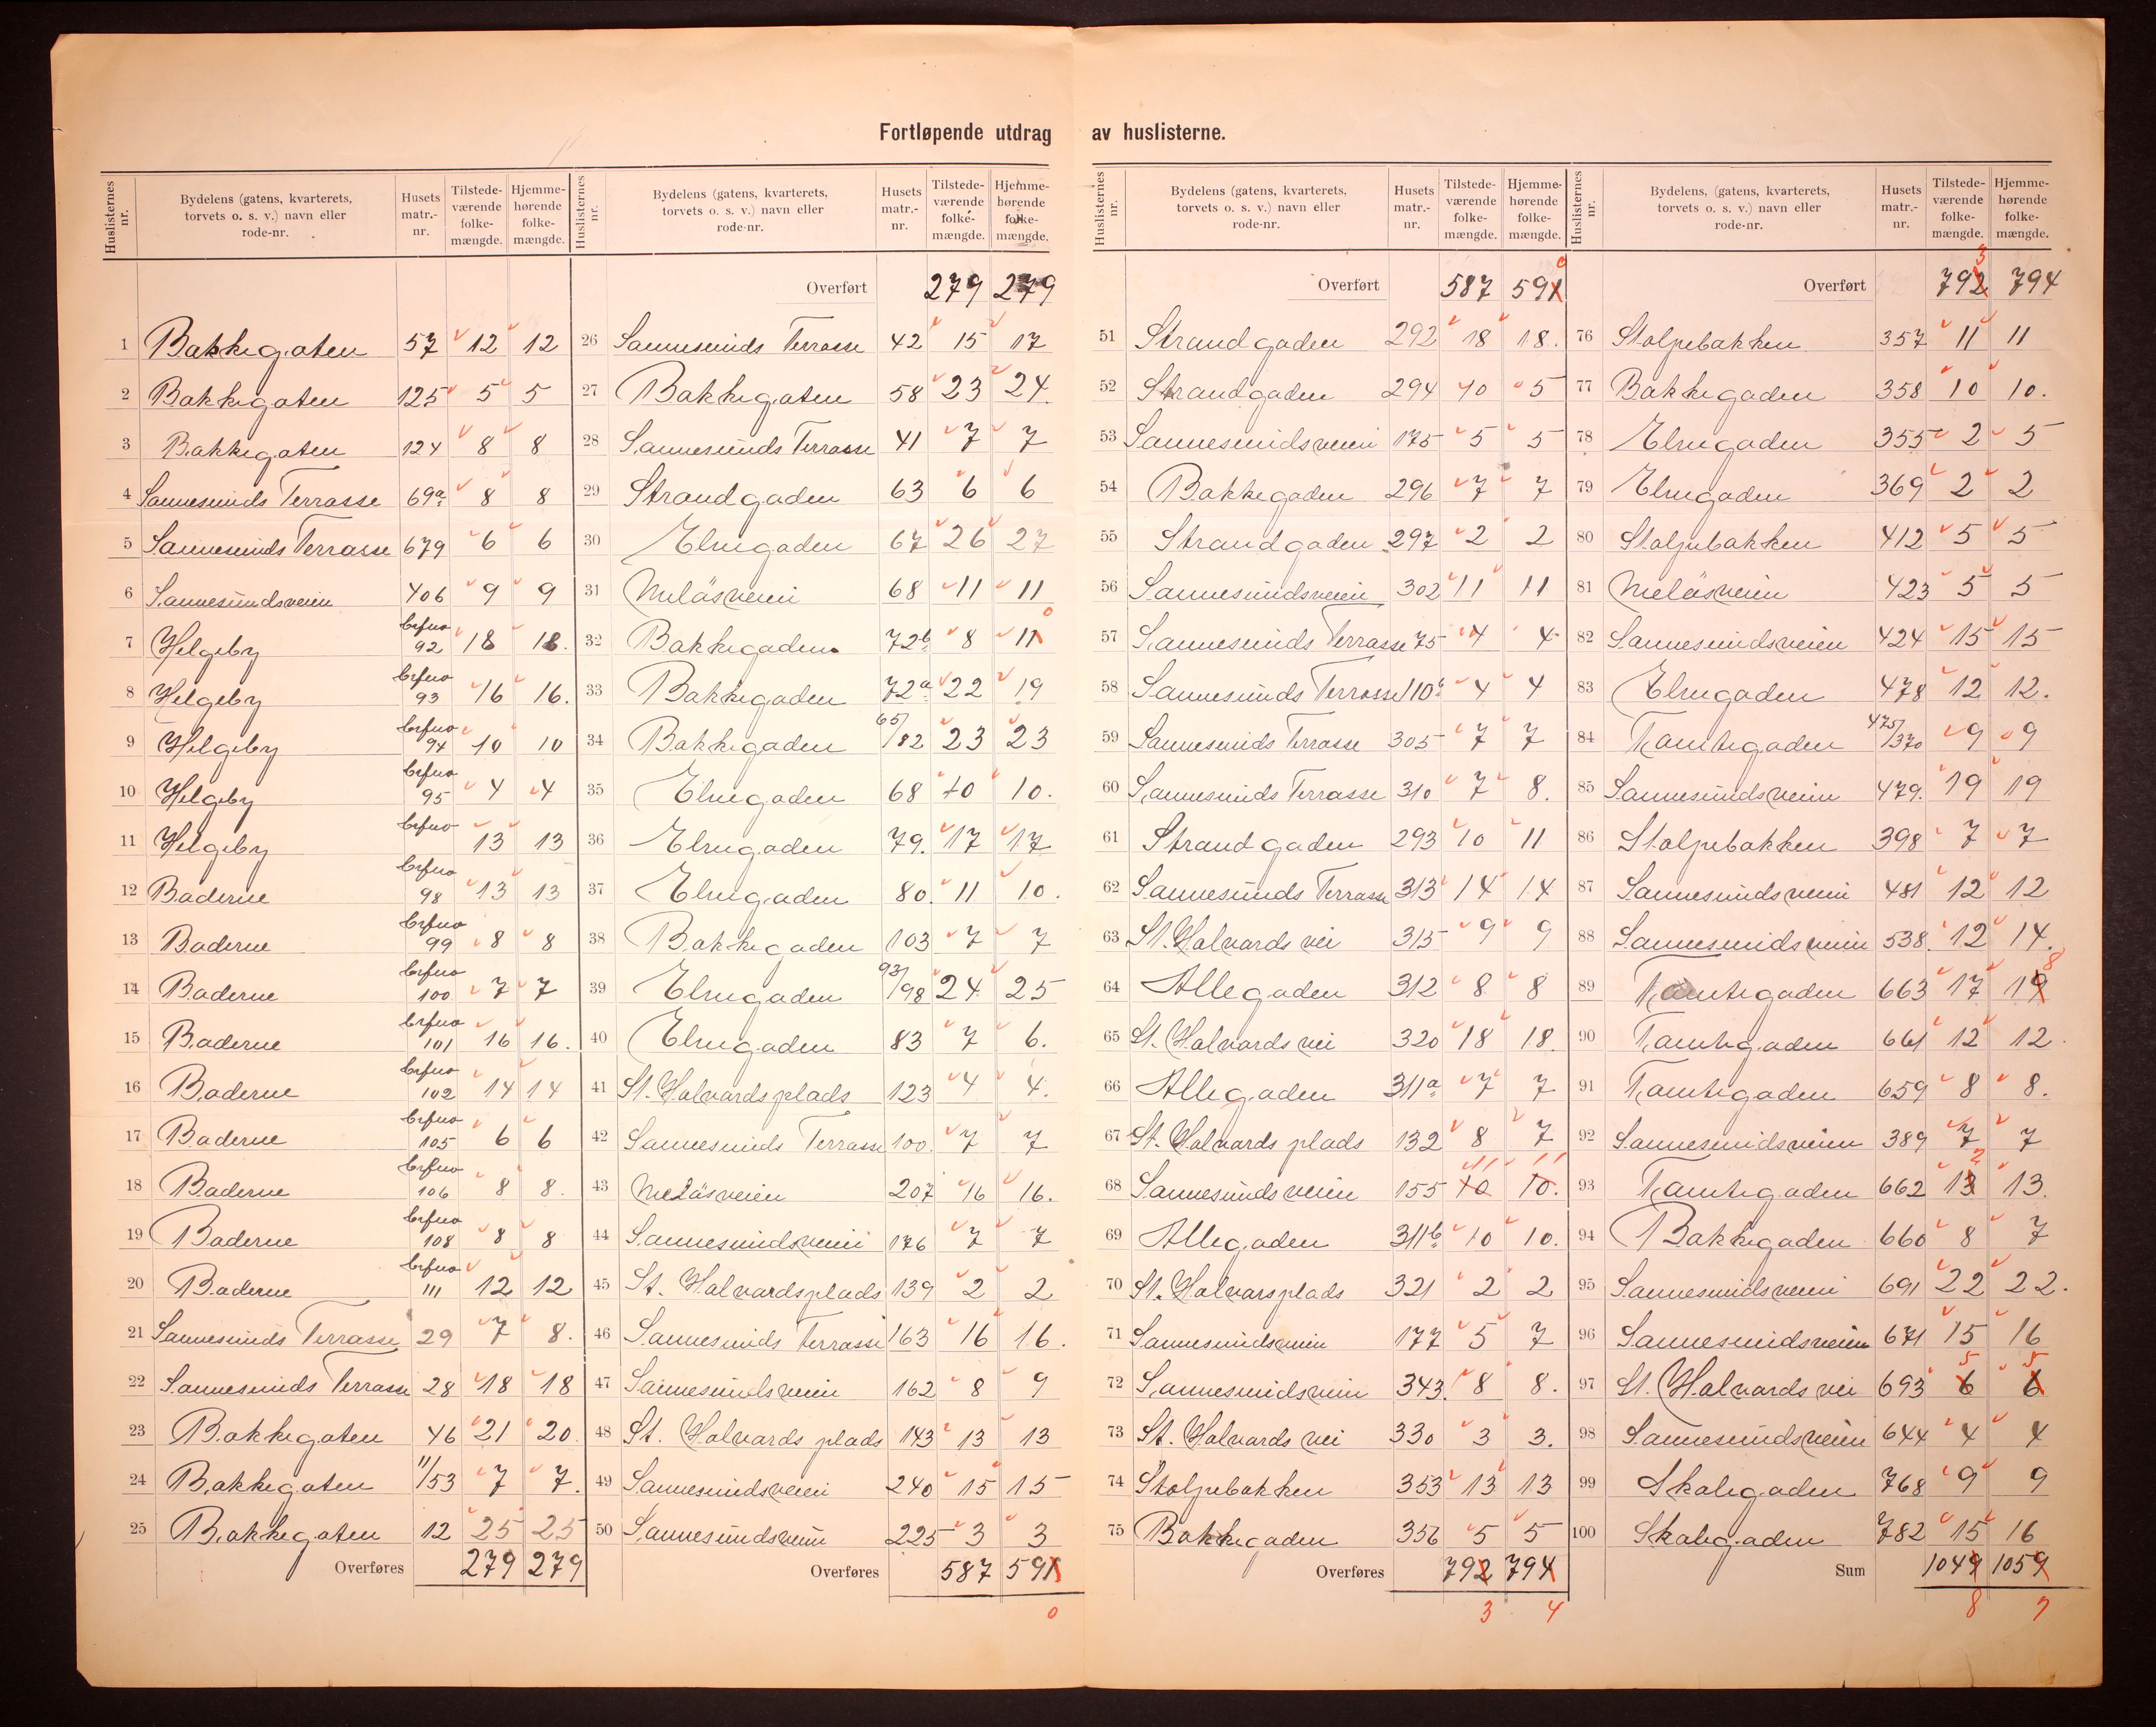 Fortløpende utdrag av huslisterne.
Huslisternes nr. | Bydelens (gatens, kvarterets, torvets o. s. v.) navn eller rode-nr. | Husets matr.-nr. | Tilstede-værende folke-mængde. | Hjemme-hørende folke-mængde.
1 Bakkegaten 57 12 12
2 Bakkegaten 125 5 5
3 Bakkegaten 124 8 8
4 Sannesunds Terrasse 69a 8 8
5 Sannesunds Terrasse 679 6 6
6 Sannesundsveien 406 9 9
7 Helgeby 92 18 18.
8 Helgeby 93 16 16.
9 Helgeby 94 10 10
10 Helgeby 95 4 4
11 Helgeby 13 13
12 Baderne 98 13 13
13 Baderne 99 8 8
14 Baderne 100 7 7
15 Baderne 101 16 16.
16 Baderne 102 14 14
17 Baderne 105 6 6
18 Baderne 106 8 8.
19 Baderne 108 8 8
20 Baderne 111 12 12
21 Sannesunds Terrasse 29 7 8.
22 Sannesunds Terrasse 28 18 18
23 Bakkegaten 46 21 20.
24 Bakkegaten 11/53 7 7.
25 Bakkegaten 12 25 25
Overføres 279 279
Huslisternes nr. | Bydelens (gatens, kvarterets, torvets o. s. v.) navn eller rode-nr. | Husets matr.-nr. | Tilstede-værende folke-mængde. | Hjemme-hørende folke-mængde.
Overført 279 279
26 Sannesunds Terrasse 42 15 17
27 Bakkegaten 58 23 24
28 Sannesunds Terrasse 41 7 7
29 Strandgaden 63 6 6
30 Elvegaden 67 26 27
31 Melösveien 68 11 11
32 Bakkegaden 72b 8 11 0
33 Bakkegaden 72a 22 19
34 Bakkegaden 65/182 23 23
35 Elvegaden 68 10 10.
36 Elvegaden 79. 17 17
37 Elvegaden 80. 11 10.
38 Bakkegaden 103 7 7
39 Elvegaden 93/198 24 25
40 Elvegaden 83 7 6.
41 St. Halvardsplads 123 4 4.
42 Sannesunds Terrasse 100. 7 7
43 Melösveien 207 16 16.
44 Sannesundsveien 176 7 7
45 St. Halvardsplads 139 2 2
46 Sannesunds Terrasse 163 16 16.
47 Sannesundsveien 162 8 9
48 St. Halvards plads 143 13 13
49 Sannesundsveien 240 15 15
50 Sannesundsveien 225 3 3
Overføres 587 591
0
Huslisternes nr. | Bydelens (gatens, kvarterets, torvets o. s. v.) navn eller rode-nr. | Husets matr.-nr. | Tilstede-værende folke-mængde. | Hjemme-hørende folke-mængde.
Overført 587 591 0
51 Strandgaden 292 18 18.
52 Strandgaden 294 10 5
53 Sannesundsveien 175 5 5
54 Bakkegaden 296 7 7
55 Strandgaden 297 2 2
56 Sannesundsveien 302 11 11
57 Sannesunds Terrasse 75 4 4
58 Sannesunds Terrasse 110b 4 4
59 Sannesunds Terrasse 305 7 7
60 Sannesunds Terrasse 310 7 8.
61 Strandgaden 293 10 11
62 Sannesunds Terrasse 313 14 14
63 St. Halvards vei 315 9 9
64 Allegaden 312 8 8
65 St. Halvards vei 320 18 18.
66 Allegaden 311a 7 7
67 St. Halvards plads 132 8 7
68 Sannesundsveien 155 10 11 10. 11
69 Allegaden 311b 10 10.
70 St. Halvarsplads 321 2 2
71 Sannesundsveien 177 5 7
72 Sannesundsveien 343. 8 8.
73 St. Halvards vei 330 3 3.
74 Stolpebakken 353 13 13
75 Bakkegaden 356 5 5
Overføres 792 794
3 4
Huslisternes nr. | Bydelens, (gatens, kvarterets, torvets o. s. v.) navn eller rode-nr. | Husets matr.-nr. | Tilstede-værende folke-mængde. | Hjemme-hørende folke-mængde.
Overført 792 3 794
76 Stolpebakken 357 11 11
77 Bakkegaden 358 10 10.
78 Elvegaden 355 2 5
79 Elvegaden 369 2 2
80 Stolpebakken 412 5 5
81 Melösveien 423 5 5
82 Sannesundsveien 424 15 15
83 Elvegaden 478 12 12.
84 Tamtegaden 475/370 9 9
85 Sannesundsveien 479. 19 19
86 Stolpebakken 398 7 7
87 Sannesundsveien 481 12 12
88 Sannesundsveien 538. 12 14.
89 Tamtegaden 663 17 19 8
90 Tamtegaden 661 12 12.
91 Tamtegaden 659 8 8.
92 Sannesundsveien 389 7 7
93 Tamtegaden 662 13 2 13.
94 Bakkegaden 660 8 7
95 Sannesundsveien 691 22 22.
96 Sannesundsveien 671 15 16
97 St. Halvards vei 693 6 5 6 5
98 Sannesundsveien 644 4 4
99 Skolegaden 768 9 9
100 Skolegaden 782 15 16
Sum 1049 1059
8 7